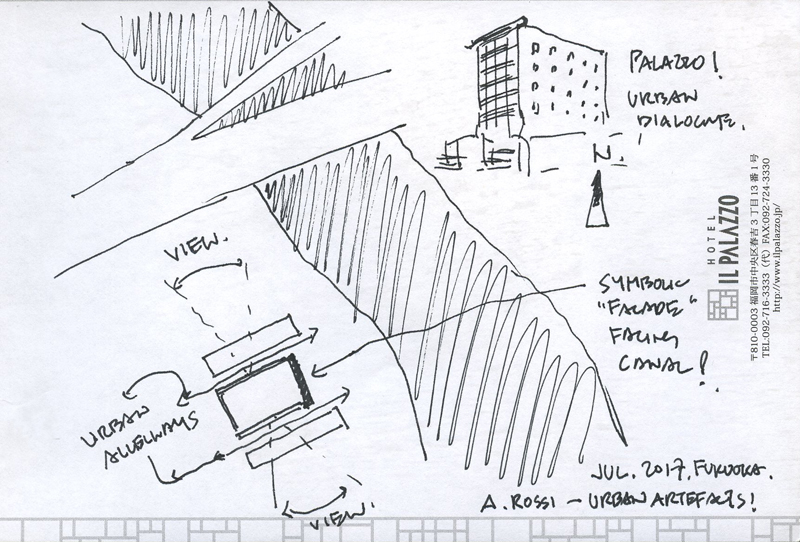 PALAZZO!
URBAN
DIALOGUTE.
N
VIEW.
SYMBOLIC
"FACADE"
FACING
CANAL!
URBAN
ALLEYWAYS
VIEW!
JUL. 2017, FUKUOKA.
A. ROSSI – URBAN ARTEFACTS!
HOTEL
IL PALAZZO
〒810-0003 福岡市中央区春吉3丁目13番1号
TEL:092-716-3333(代) FAX:092-724-3330
http://www.ilpalazzo.jp/